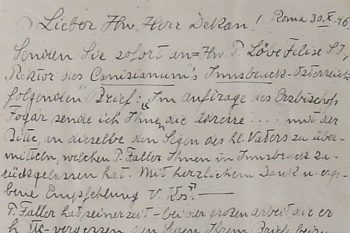 Lieber Hw. Herr Dekan! Roma 30.X.46
Senden Sie sofort an Hw. P. Löve Felise SJ,
Rektor des Canisianum's Innsbruck-Österreich
folgenden Brief: "Im Auftrage des Erzbischofs
Fogar sende ich Ihnen die .... mit der
Bitte, an dieselbe den Segen des hl. Vaters zu über-
mitteln, welchen P. Faller Ihnen in Innsbruck zu-
rückgelassen hat. Mit herzlichem Dank u. erge-
bene Empfehlung V.
P. Faller hat seinerzeit - bei der grozen arbeit die er
hatte - vergessen den Segen Ihrem Brief